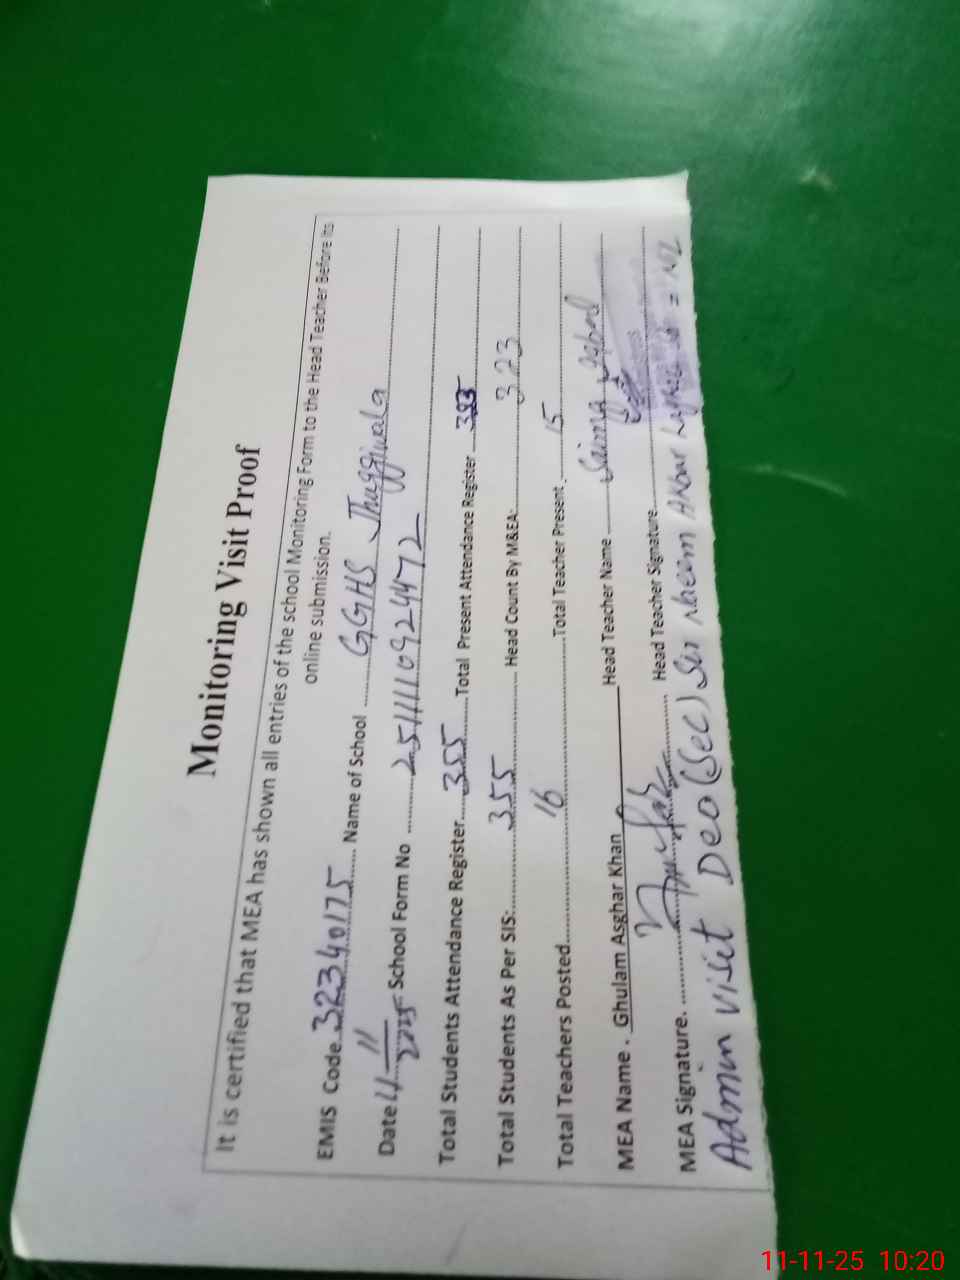 Monitoring Visit Proof
It is certified that MEA has shown all entries of the school Monitoring Form to the Head Teacher Before its
online submission.
EMIS Code 32340175 Name of School GGHS Jhuggiwala
Date 11/11 2025 School Form No 2511110924472
Total Students Attendance Register 355 Total Present Attendance Register 323
Total Students As Per SIS: 355 Head Count By M&EA: 323
Total Teachers Posted 16 Total Teacher Present 15
MEA Name . Ghulam Asghar Khan Head Teacher Name Saima Iqbal
MEA Signature. Head Teacher Signature
Admin visit Deo (Sec) Sir Naeem Akbar
11-11-25 10:20